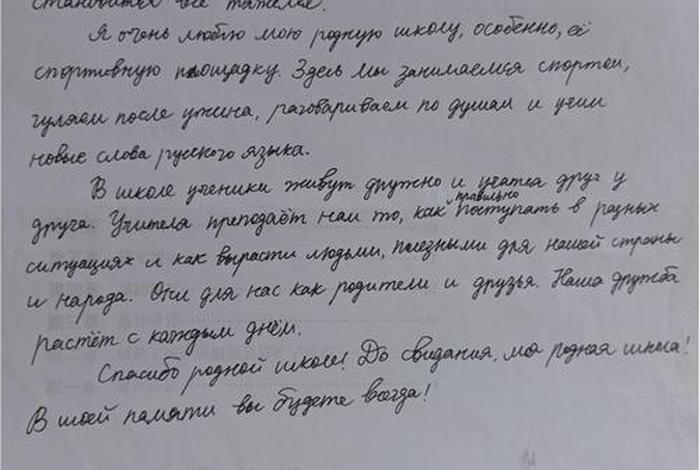 становится всё тяжелее.
Я очень люблю мою родную школу, особенно, её
спортивную площадку. Здесь мы занимаемся спортом,
гуляем после ужина, разговариваем по душам и учим
новые слова русского языка.
В школе ученики живут дружно и учатся друг у
правильно
друга. Учителя преподаёт нам то, как поступать в разных
ситуациях и как вырасти людьми, полезными для нашей страны
и народа. Они для нас как родители и друзья. Наша дружба
растёт с каждым днём.
Спасибо родной школе! До свидания, моя родная школа!
В моей памяти вы будете всегда!